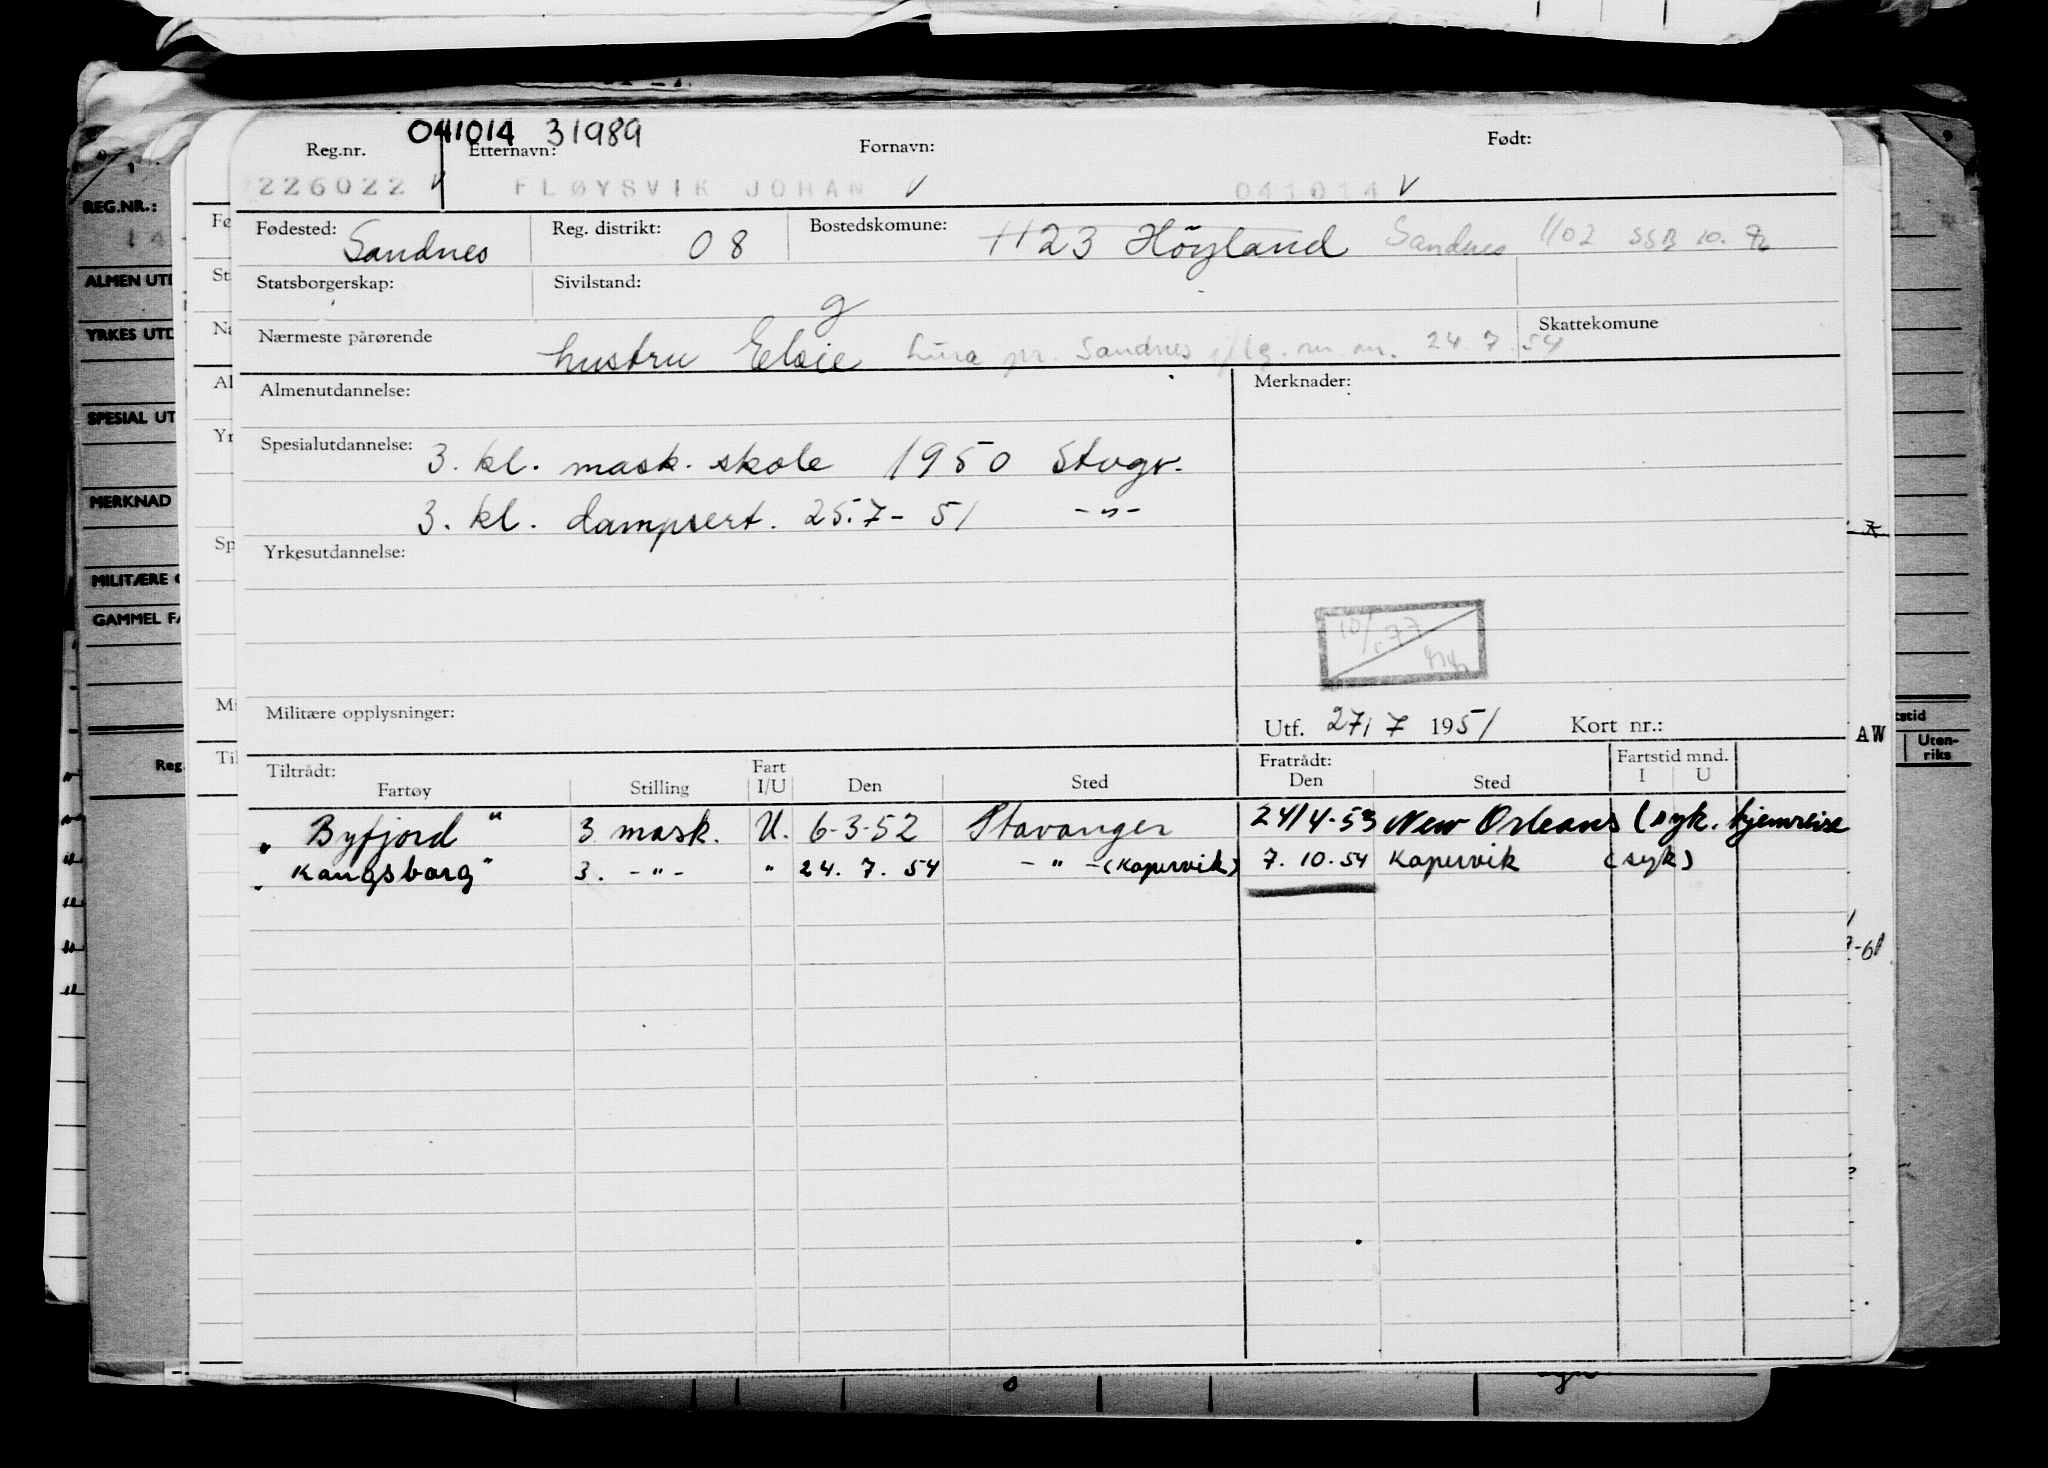 041014 31989
Reg.nr. Etternavn: Fornavn: Født:
226022 FLØYSVIK JOHAN 041014
Fødested: Sandnes Reg. distrikt: 08 Bostedskomune: 1123 Höyland Sandnes 1102 SSB 10.
Statsborgerskap: Sivilstand: g
Nærmeste pårørende hustru Elsie Lura pr. Sandnes 24.7.54 Skattekomune
Almenutdannelse: Merknader:
Spesialutdannelse: 3. kl. mask. skole 1950 Stvgr.
3. kl. dampsert. 25.7-51 -"-
Yrkesutdannelse:
10/1.77
Militære opplysninger: Utf. 27/7 1951 Kort nr.:
Tiltrådt: Fratrådt: Fartstid mnd.
Fartøy Stilling Fart I/U Den Sted Den Sted I U
"Byfjord" 3 mask. U. 6-3-52 Stavanger 24/4-53 New Orleans (syk. hjemreise
"Kongsborg" 3. -"- " 24. 7. 54 -"- (Kopervik) 7. 10. 54 Kopervik (syk)
REG.NR.:
ALMEN UTD
YRKES UTD
SPESIAL UT
MERKNAD
MILITÆRE O
GAMMEL FA
Reg.
Fø
St
Na
Al
Yr
Sp
Mi
Til
AW
tstid
Uten-
riks
-61